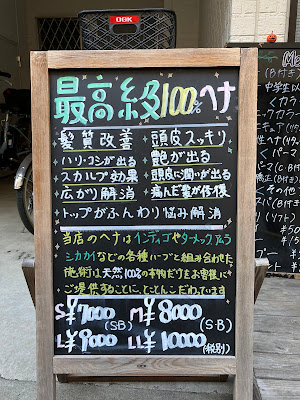 OGK
最高級100%ヘナ
髪質改善 頭皮スッキリ
ハリ・コシが出る 艶が出る
スカルプ効果 頭皮に潤いが出る
広がり解消 痛んだ髪が修復
トップがふんわり悩み解消
当店のヘナはインディゴやターメックアムラ
シカカイなどの各種ハーブと組み合わせた
施術は天然100%の本物だけをお客様に
ご提供することに、とことんこだわっています
S ¥7000 (S・B) M ¥8000 (S・B)
L ¥9000 LL ¥10000 (税別)
Me
(B付き)
中学生以
くカラ
ックカラ
パーマ
パーマ(
その他